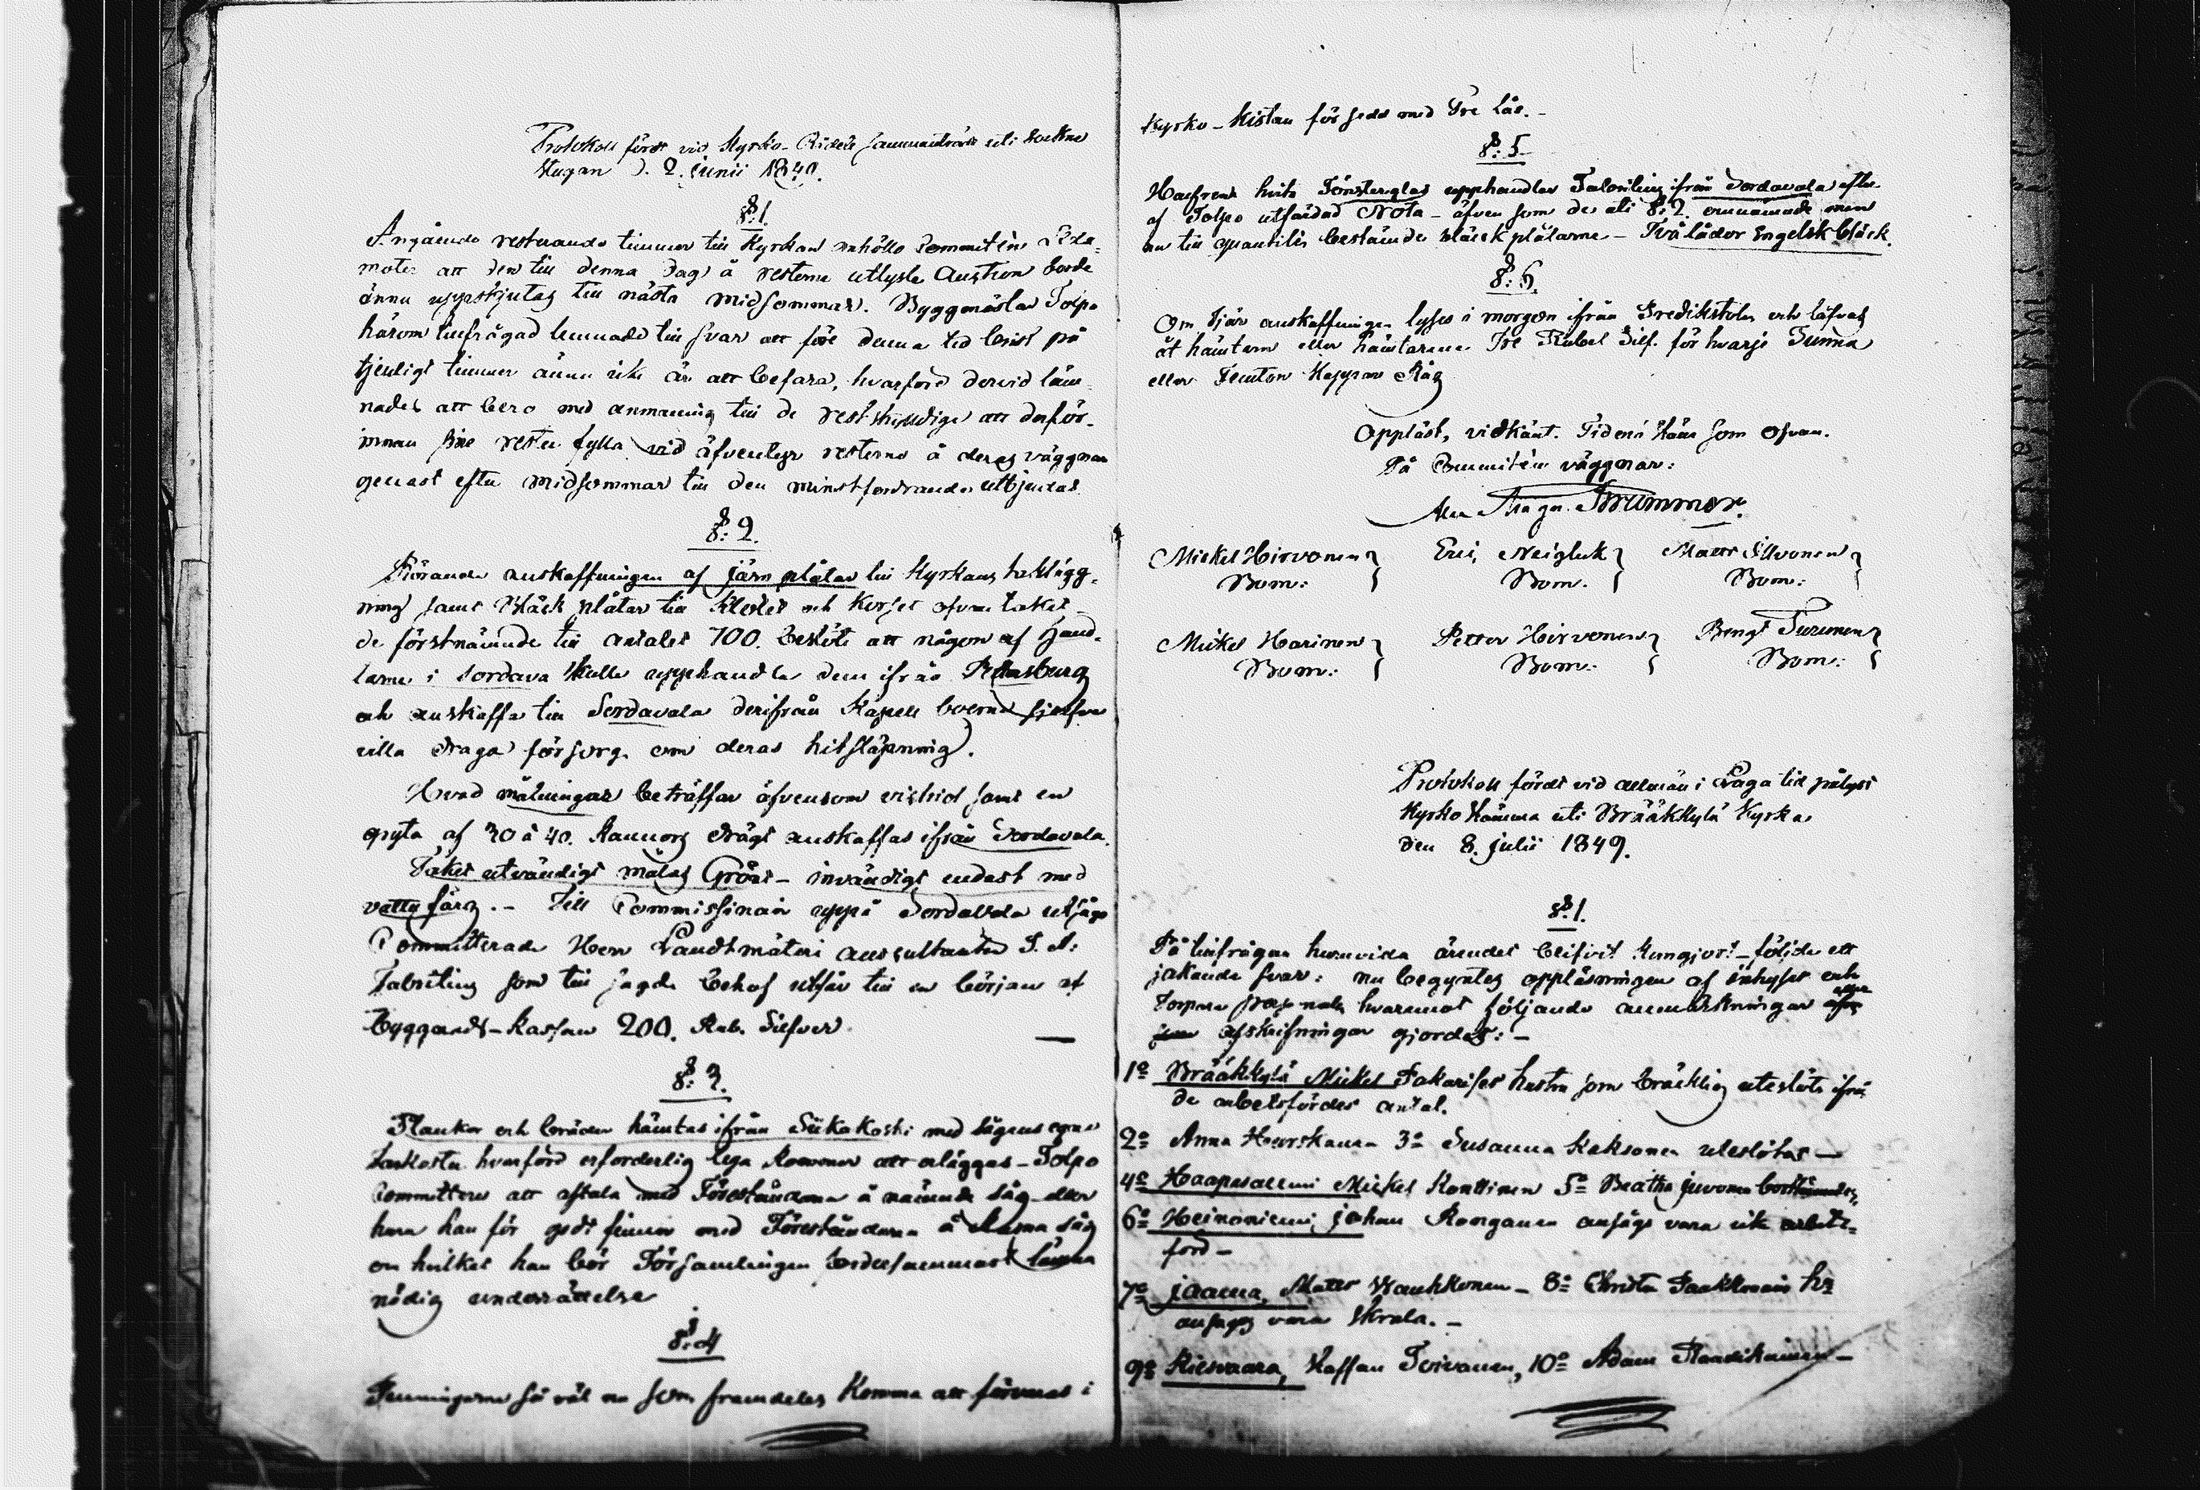 Protokoll fördt vid Kyrko-Rådets sammanträde uti Sockne
stugan d. 2. junii 1849.
§: 1.
Angående resterande timmer till Kyrkan anhöllo Committéns Leda-
möter att den till denna dag å resterne utlyste Auction borde
ännu uppskjutas till nästa midsommar. Byggmästar Tolpo
härom tillfrågad lemnade till svar att före denna tid brist på
tjenligt timmer ännu icke är att befara, hvarföre dervid läm-
nades att bero med anmaning till de restskyldige att derför-
innan sine rester fylla vid äfventyr resterne å deras vägnar
genast efter midsommar till den minstfordrande utbjudas.
§: 2.
Rörande anskaffningen af järn plåtar till Kyrkans takslägg-
ning samt Bläck plåtar till Klotet och Korset ofvan taket-
de förstnämnde till antalet 700. beslöts att någon af Hand-
larne i Sordavala skulle upphandla dem ifrån Petersburg
och anskaffa till Sordavala derifrån Kapell boerne sjelfve
villa draga försorg om deras hitsläpning.
Hvad målningar beträffar äfvensom victriol samt en
gryta af 30 à 40. Kannors drägt anskaffas ifrån Sordavala.
Taket utvändigt målas Grönt - invändigt endast med
vattufärg. - Till Commissionair uppå Sordavala utsågs
Committerade Herr Landtmäteri auscultanten
som till sagde behof utfår till en början af
byggnads-kassan 200. Rub. Silfver. —
§: 3.
Plankor och bräder hämtas ifrån Sükakoski med sågens egne
hvarföre erforderlig lega kommer att erläggas - Tolpo
committeras att aftala med Föreståndarne å nämnde såg eller
hvar han för godt finner med Föreståndarne å såg
om hvilket han bör Församlingen fordersammast lämna
nödig underrättelse
§: 4
Penningarne så väl nu som framdeles komma att förvaras i
Kyrko-Kistan försedd med Tre Lås. -
§: 5
hvita Fönsterglas upphandlar ifrån Sordavala efter
af Tolpo utfärdad Nota - äfven som de uti §: 2. omnämnde men
ej till quantité bestämde bläckplåtarne - Två lådor Engelsk bläck.
§: 6.
Om Tjär anskaffningen lyses i morgon ifrån Predikstolen och löfvas
åt hämtaren eller hämtarena Tre Rubel Silf. för hvarje Tunna
eller Femton Kappar Råg
Uppläst, vidkänt. Tiden som ofvan.
På Committéns vägnar:
Trummer.
Mickel Hirvonen } Eric Neigluk } Matts Illvonen }
Bom: } Bom. } Bom: }
Mickel Harinen } Petter Hirvonen } Bengt Turunen }
Bom: } Bom: } Bom: }
Protokoll fördt vid allmän i Laga tid pålyst
Kyrko Stämma uti Brååkkylä Kyrka
den 8. julii 1849.
§: 1.
På tillfrågan huruvida ärendet blifvit kungjort - följde ett
jakande svar: nu begyntes uppläsningen af inhyses och
Torpare hvaremot följande anmärkningar eller
afskrifningar gjordes: -
1º Brååkkylä Mickel hustru som bräcklig uteslöts ifrån
de arbetsfördes antal.
2º Anna 3º Susanna Kaksonen uteslötos —
4º Haapasalmi Mickel Konttinen 5º Beatha Juvonen
6º Heinoniemi Johan Ronganen ansågs vara icke arbets-
förd -
7º Jaama, Matts Wänskkonen - 8º Christa hu
ansågs vara skrala. -
9º Kiesvaara, Staffan Toivanen, 10º Adam -